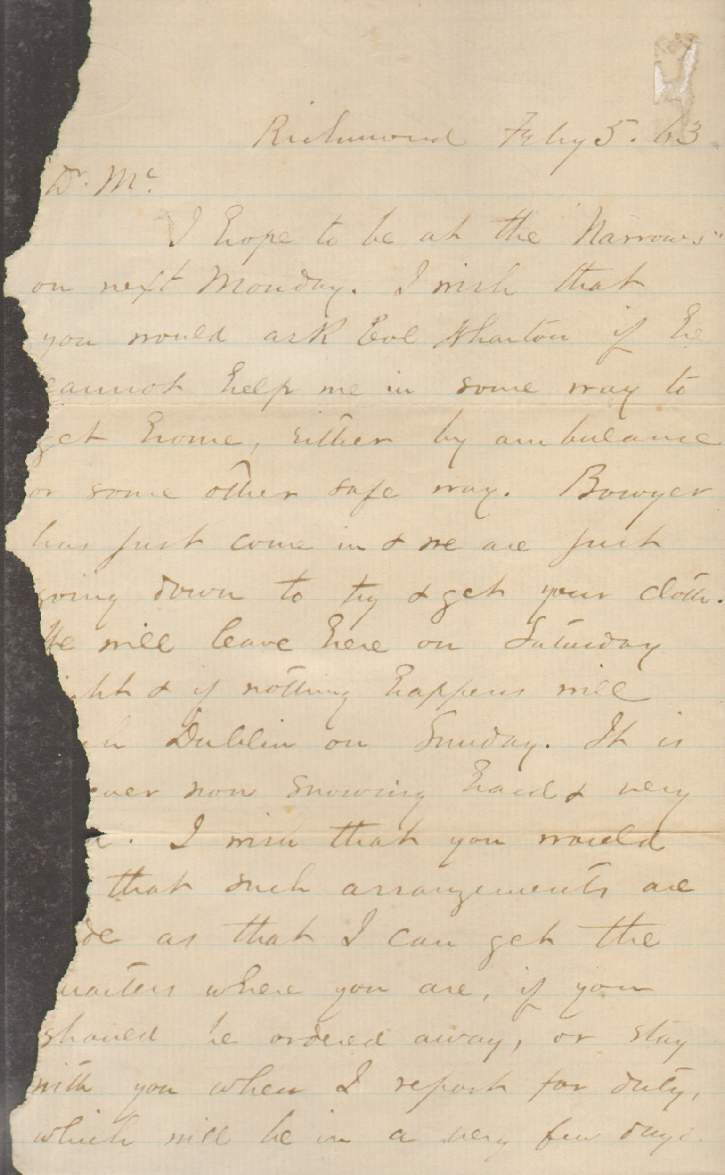 Richmond Feby 5. 63
Dr. Mc.
I hope to be at the "Narrows"
on next Monday. I wish that
you would ask Col Wharton if he
cannot help me in some way to
get home, either by ambulance
or some other safe way. Bowyer
has just come in & we are just
going down to try & get your cloth.
We will leave here on Saturday
ight & if nothing happens will
h Dublin on Sunday. It is
ever now snowing hard & very
. I wish that you would
that such arrangements are
de as that I can get the
uarters where you are, if you
should be ordered away, or stay
with you when I report for duty,
which will be in a very few days.